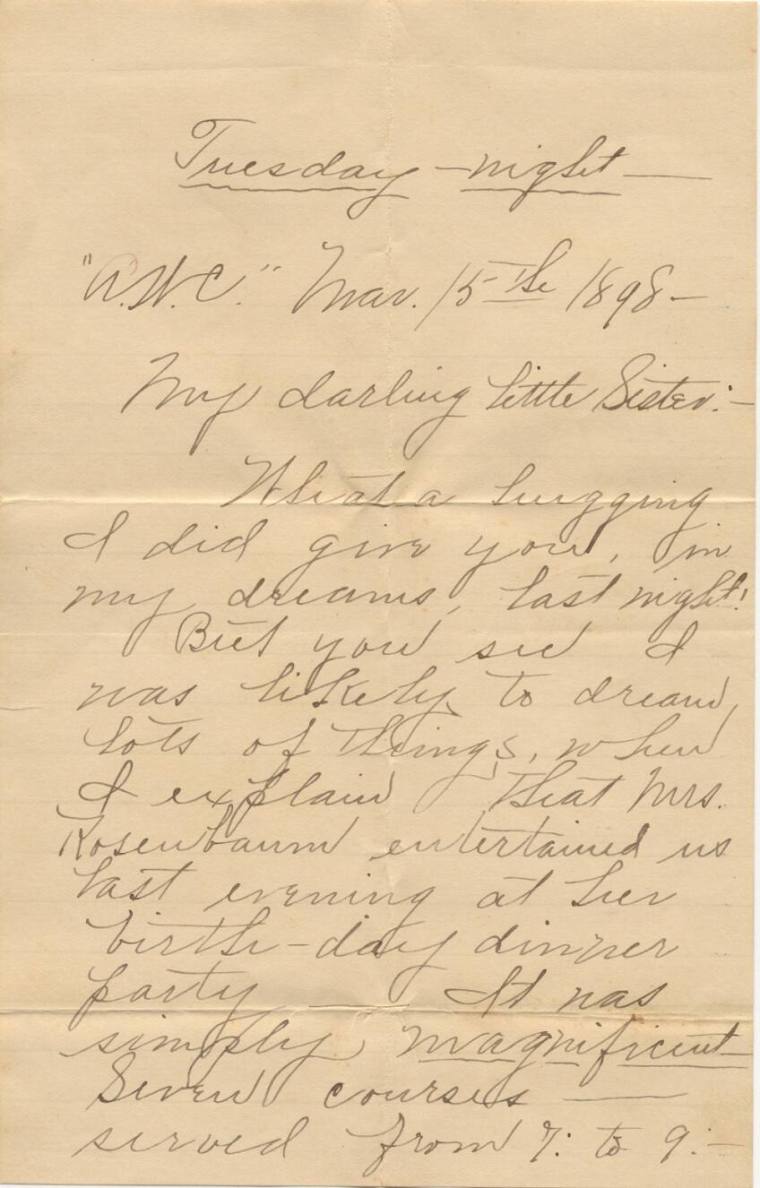 Tuesday - night —
"A.W.C." Mar. 15th 1898 -
My darling little Sister:-
What a hugging
I did give you, in
my dreams, last night!
But you see I
was likely to dream
lots of things, when
I explain that Mrs.
Rosenbaum entertained us
last evening at her
birth-day dinner
party — It was
simply magnificent
Seven courses —
served from 7: to 9:-